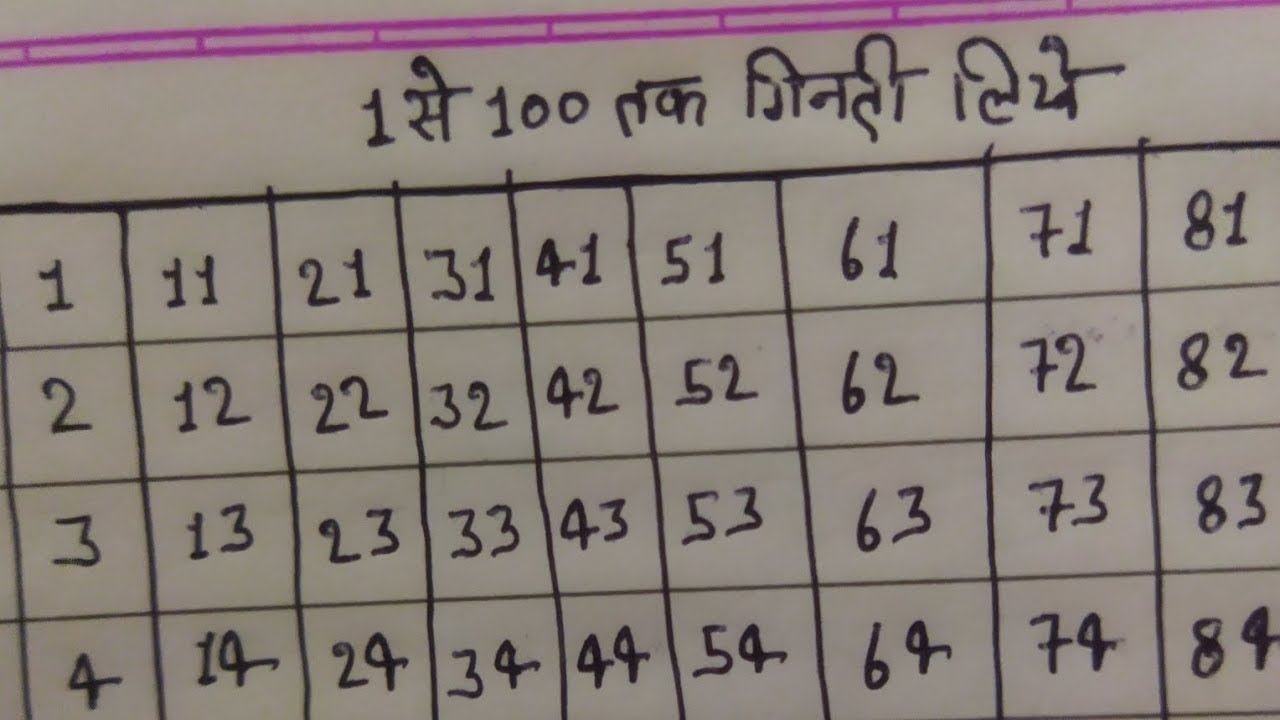 1 से 100 तक गिनती लिखे
1 11 21 31 41 51 61 71 81
2 12 22 32 42 52 62 72 82
3 13 23 33 43 53 63 73 83
4 14 24 34 44 54 64 74 84